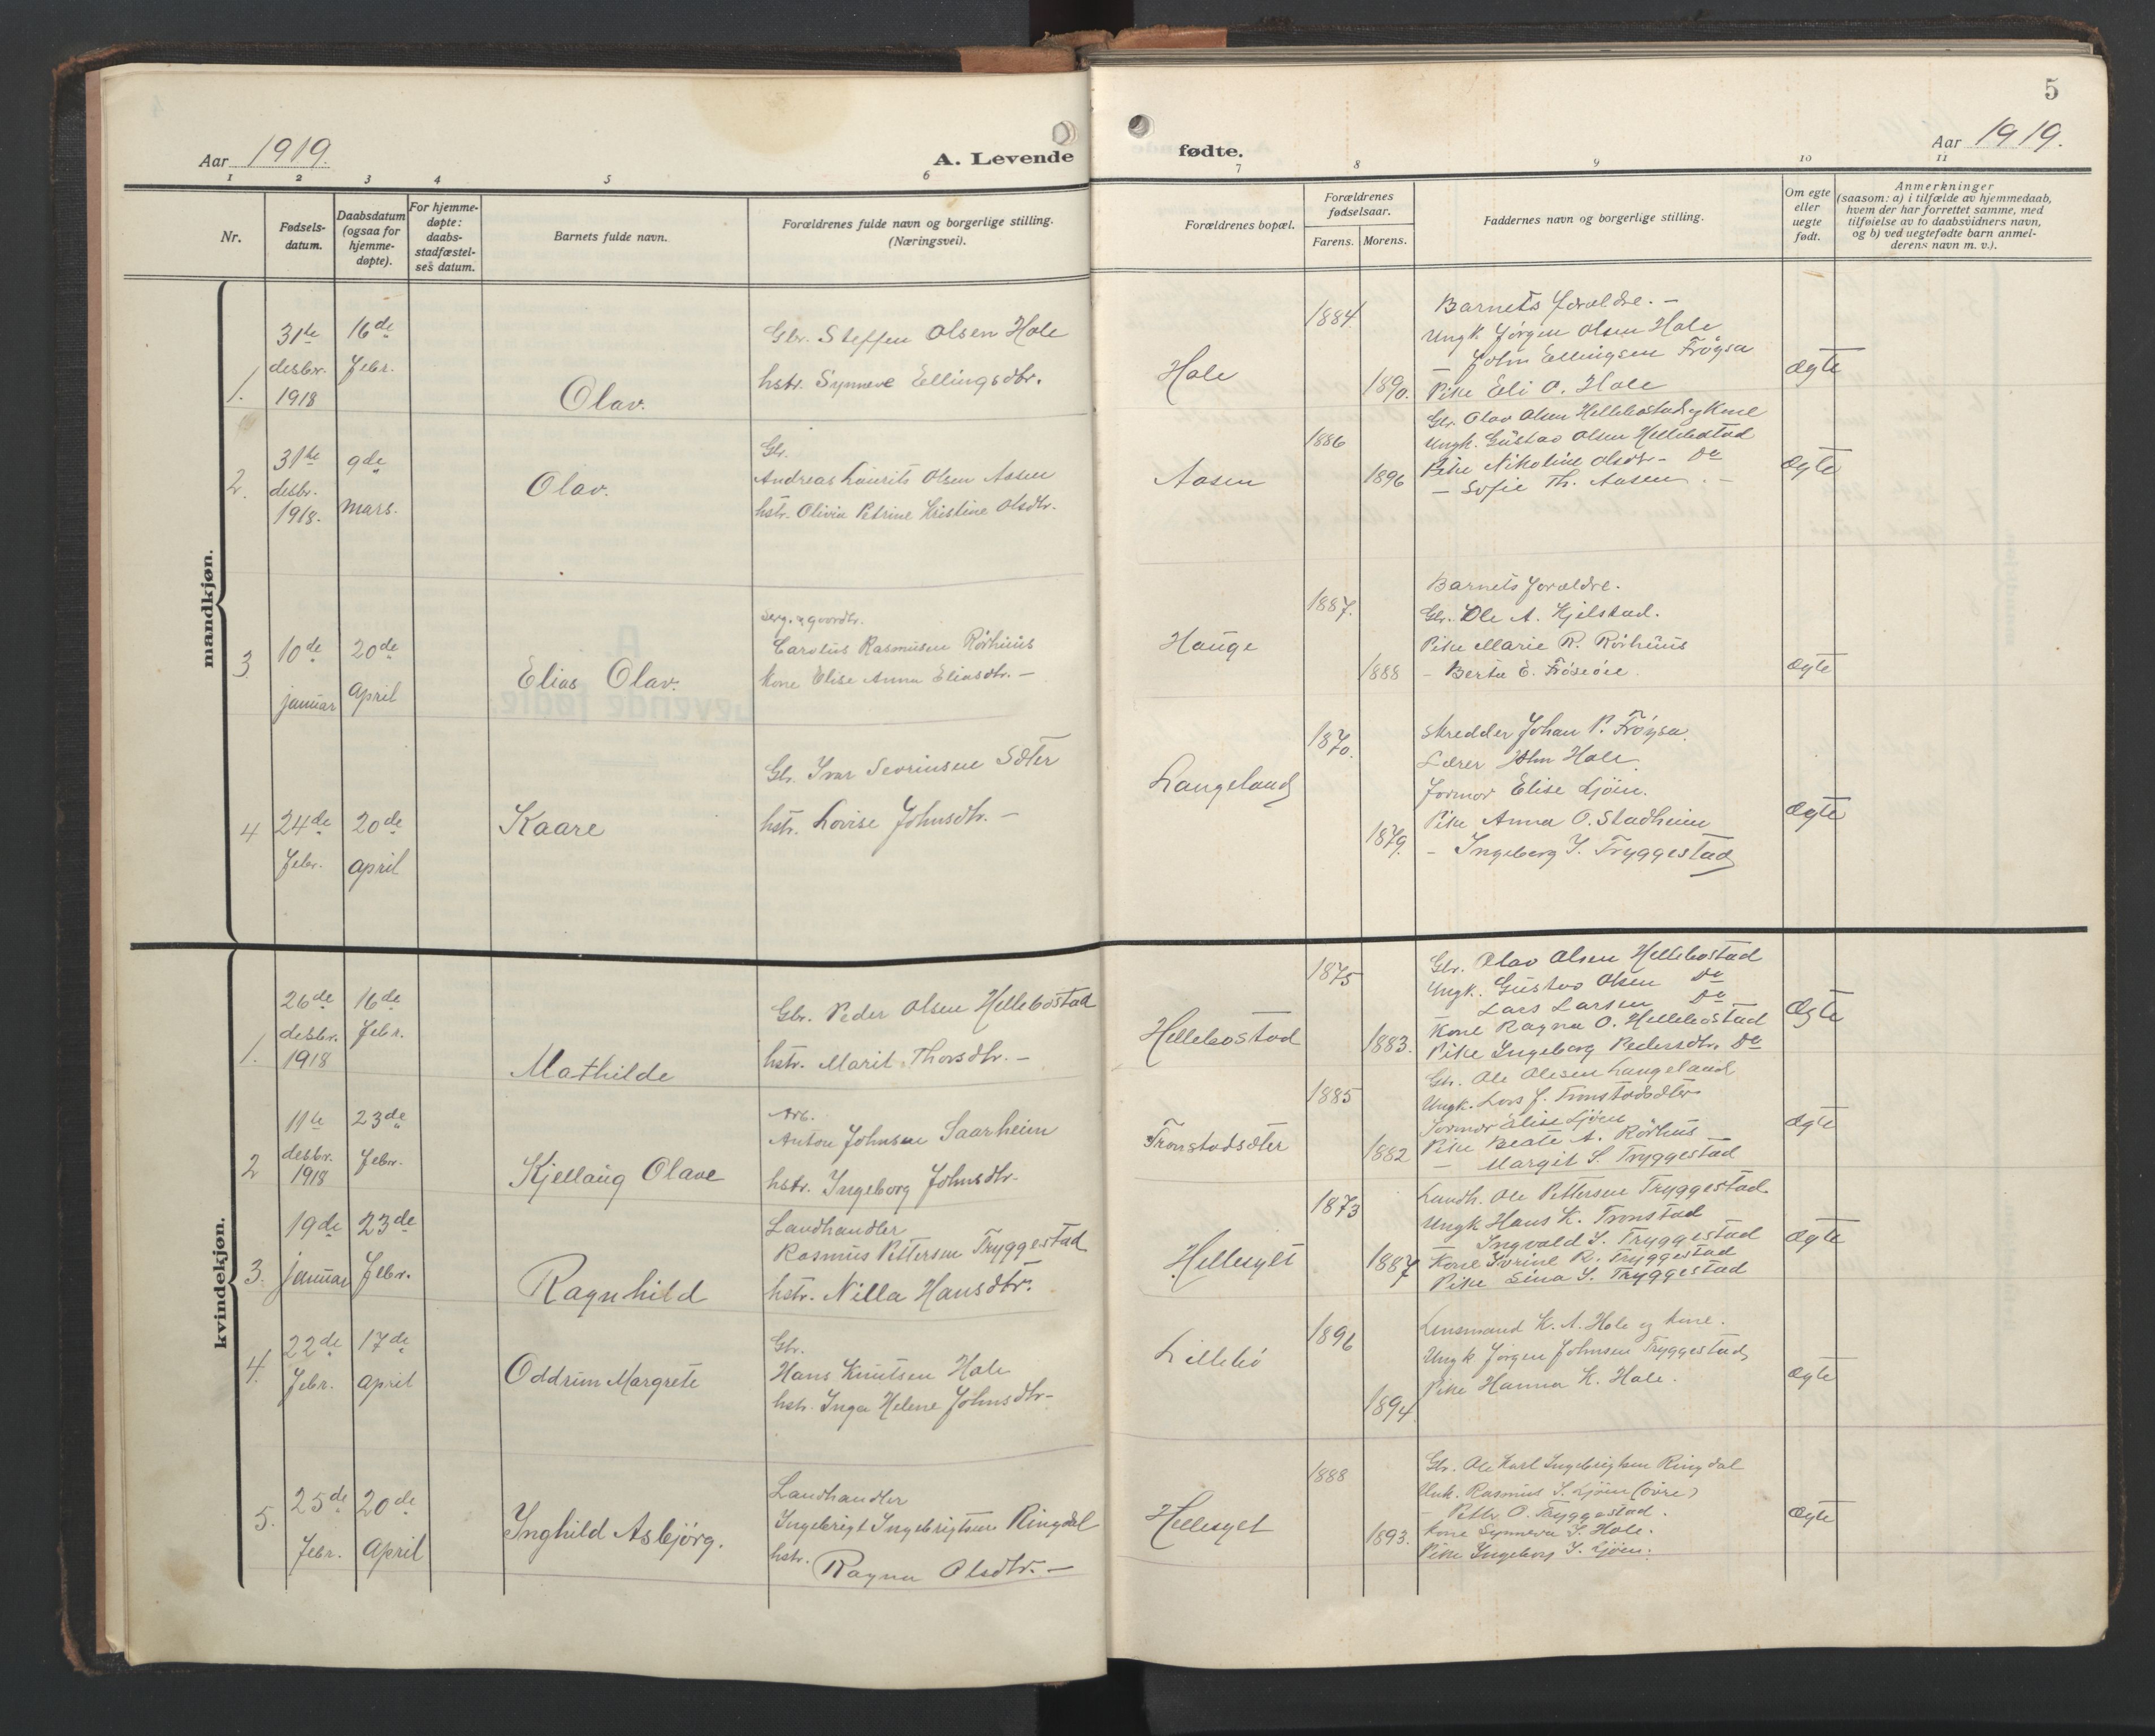 5
Aar 1919.
A. Levende
fødte.
Aar 1919.
1 2 3 4 5 6 7 8 9 10 11
Nr.
Fødsels-
datum.
Daabsdatum
(ogsaa for
hjemme-
døpte).
For hjemme-
døpte:
daabs-
stadfæstel-
ses datum.
Barnets fulde navn.
Forældrenes fulde navn og borgerlige stilling.
(Næringsvei).
Forældrenes bopæl.
Forældrenes
fødselsaar.
Farens. Morens.
Faddernes navn og borgerlige stilling.
Om egte
eller
uegte
født.
Anmerkninger
(saasom: a) i tilfælde av hjemmedaab,
hvem der har forrettet samme, med
tilføielse av to daabsvidners navn,
og b) ved uegtefødte barn anmel-
derens navn m. v.).
mandkjøn.
1.
31te
desbr.
1918
16de
Febr.
Olav.
Gbr. Steffen Olsen Hole
hstr. Synneve Ellingsdtr.
Hole
1884
1890.
Barnets forældre. -
Ungk Jørgen Olsen Hole
— John Ellingsen Frøysa
Pike Eli O. Hole
Ægte
2.
31te
desbr.
1918.
9de
mars.
Olav.
Gbr.
Andreas Laurits Olsen Aasen
hstr. Olivia Petrine Kristine Olsdtr.
Aasen
1886
1896
Gbr. Olav Olsen Hellebostad og Kone
Ungk. Gustav Olsen Hellebostad
Pike Nikoline Olsdtr. Do
— Sofie Th. Aasen. -
Ægte
3
10de
januar
20de
April
Elias Olav.
Serg. & gaardbr.
Carolus Rasmusen Rörhuus
Kone Elise Anna Eliasdtr. —
Hauge
1887.
1888
Barnets forældre.
Gbr. Ole A. Kjelstad.
Pike Marie R. Rörhuus
- Berta E. Frøsøie.
Ægte
4
24de
Febr.
20de
april
Kaare
Gbr. Ivar Sevrinsen Sæter
hstr. Lovise Johnsdtr. —
Langeland
1870.
1879.
Skredder Johan P. Frøysa.
Lærer John Hole.
Jormor Elise Ljöen.
Pike Anna O. Stadheim
- Ingeborg I. Tryggestad
Ægte
kvindekjøn.
1.
26de
desbr.
1918
16de
Febr.
Mathilde
Gbr. Peder Olsen Hellebostad
hstr. Marit Thorsdtr. —
Hellebostad
1875
1883.
Gbr. Olav Olsen Hellebostad
Ungk. Gustav Olsen Do
Lars Larsen Do
Kone Ragna O. Hellebostad
Pike Ingeborg Pedersdtr. Do
Ægte
2
11te
desbr.
1918
23de
Febr.
Kjellaug Olave
Arb.
Anton Johnsen Saarheim
hstr. Ingeborg Johnsdtr.
Tronstadsæter
1885
1882
Gbr. Ole Olesen Langeland
Ungk. Lars J. Tronstadsæter
Jormor Elise Ljöen
Pike Beate A. Rörhus
— Margit S. Tryggestad
Ægte
3.
19de
januar
23de
Febr.
Ragnhild
Landhandler
Rasmus Pettersen Tryggestad
hstr. Nilla Hansdtr.
Hellesylt
1873
1887
Landh. Ole Pettersen Tryggestad
Ungk Hans K. Tronstad
Ingvald S. Tryggestad
Kone Ivrine R. Tryggestad
Pike Sina S. Tryggestad
Ægte
4.
22de
Febr.
17de
april
Oddrun Margrete
Gbr.
Hans Knutsen Hole
hstr. Inga Helene Johnsdtr-
Lillebö
1896
1894
Lensmand K. A. Hole og kone.
Ungk Jørgen Johnsen Tryggestad
Pike Hanna K. Hole.
Ægte
5.
25de
Febr.
20de
April
Inghild Asbjörg.
Landhandler
Ingebrigt Ingebrigtsen Ringdal
hstr. Ragna Olsdtr. —
Hellesylt
1888
1893.
Gbr. Ole Karl Ingebrigtsen Ringdal
Unk. Rasmus S. Ljöen (övre)
— Petter O. Tryggestad.
Kone Synneva S. Hole.
Pike Ingeborg I. Ljöen.
Ægte